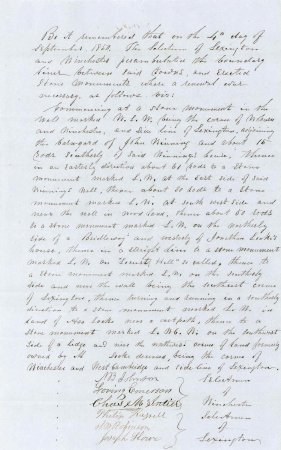 Be it remembered that on the 4th day of
September 1863. The Selectmen of Lexington
and Winchester perambulated the boundary
lines between said towns, and erected
Stone Monuments where a renewal was
necessary, as follows viz:
Commencing at a stone monument in the
wall marked W. L. W. being the corner of Woburn
and Winchester, and side line of Lexington, adjoining
the of John Winning and about 15
rods Southerly of said Winning's house, Thence
in an Easterly direction about 60 rods to a Stone
monument marked L. W. at the East side of said
Winning's Hill, thence about 80 rods to a stone
monument marked L. W. at south west side and
near the wall in wood land, thence about 60 rods
to a stone monument marked L. W. on the northerly
side of a Bridleway and westerly of Jonathan Locke's
house, thence in a straight line to a stone monument
marked L. W. on "Hill" so called, thence to
a stone monument marked L. W. on the southerly
side and near the wall being the southeast corner
of Lexington, thence turning and running in a southerly
direction to a stone monument marked L. W. on
land of Asa Locke near a cartpath, thence to a
stone monument marked L. W. C. W. on the southwest
side of a ledge and near the northwest corner of land formerly
owned by Locke deceased, being the corner of
Winchester and West Cambridge and side line of Lexington.
Johnson Selectmen
Loring Emerson of
Chas. Winchester
William Selectmen
of
Joseph Lexington